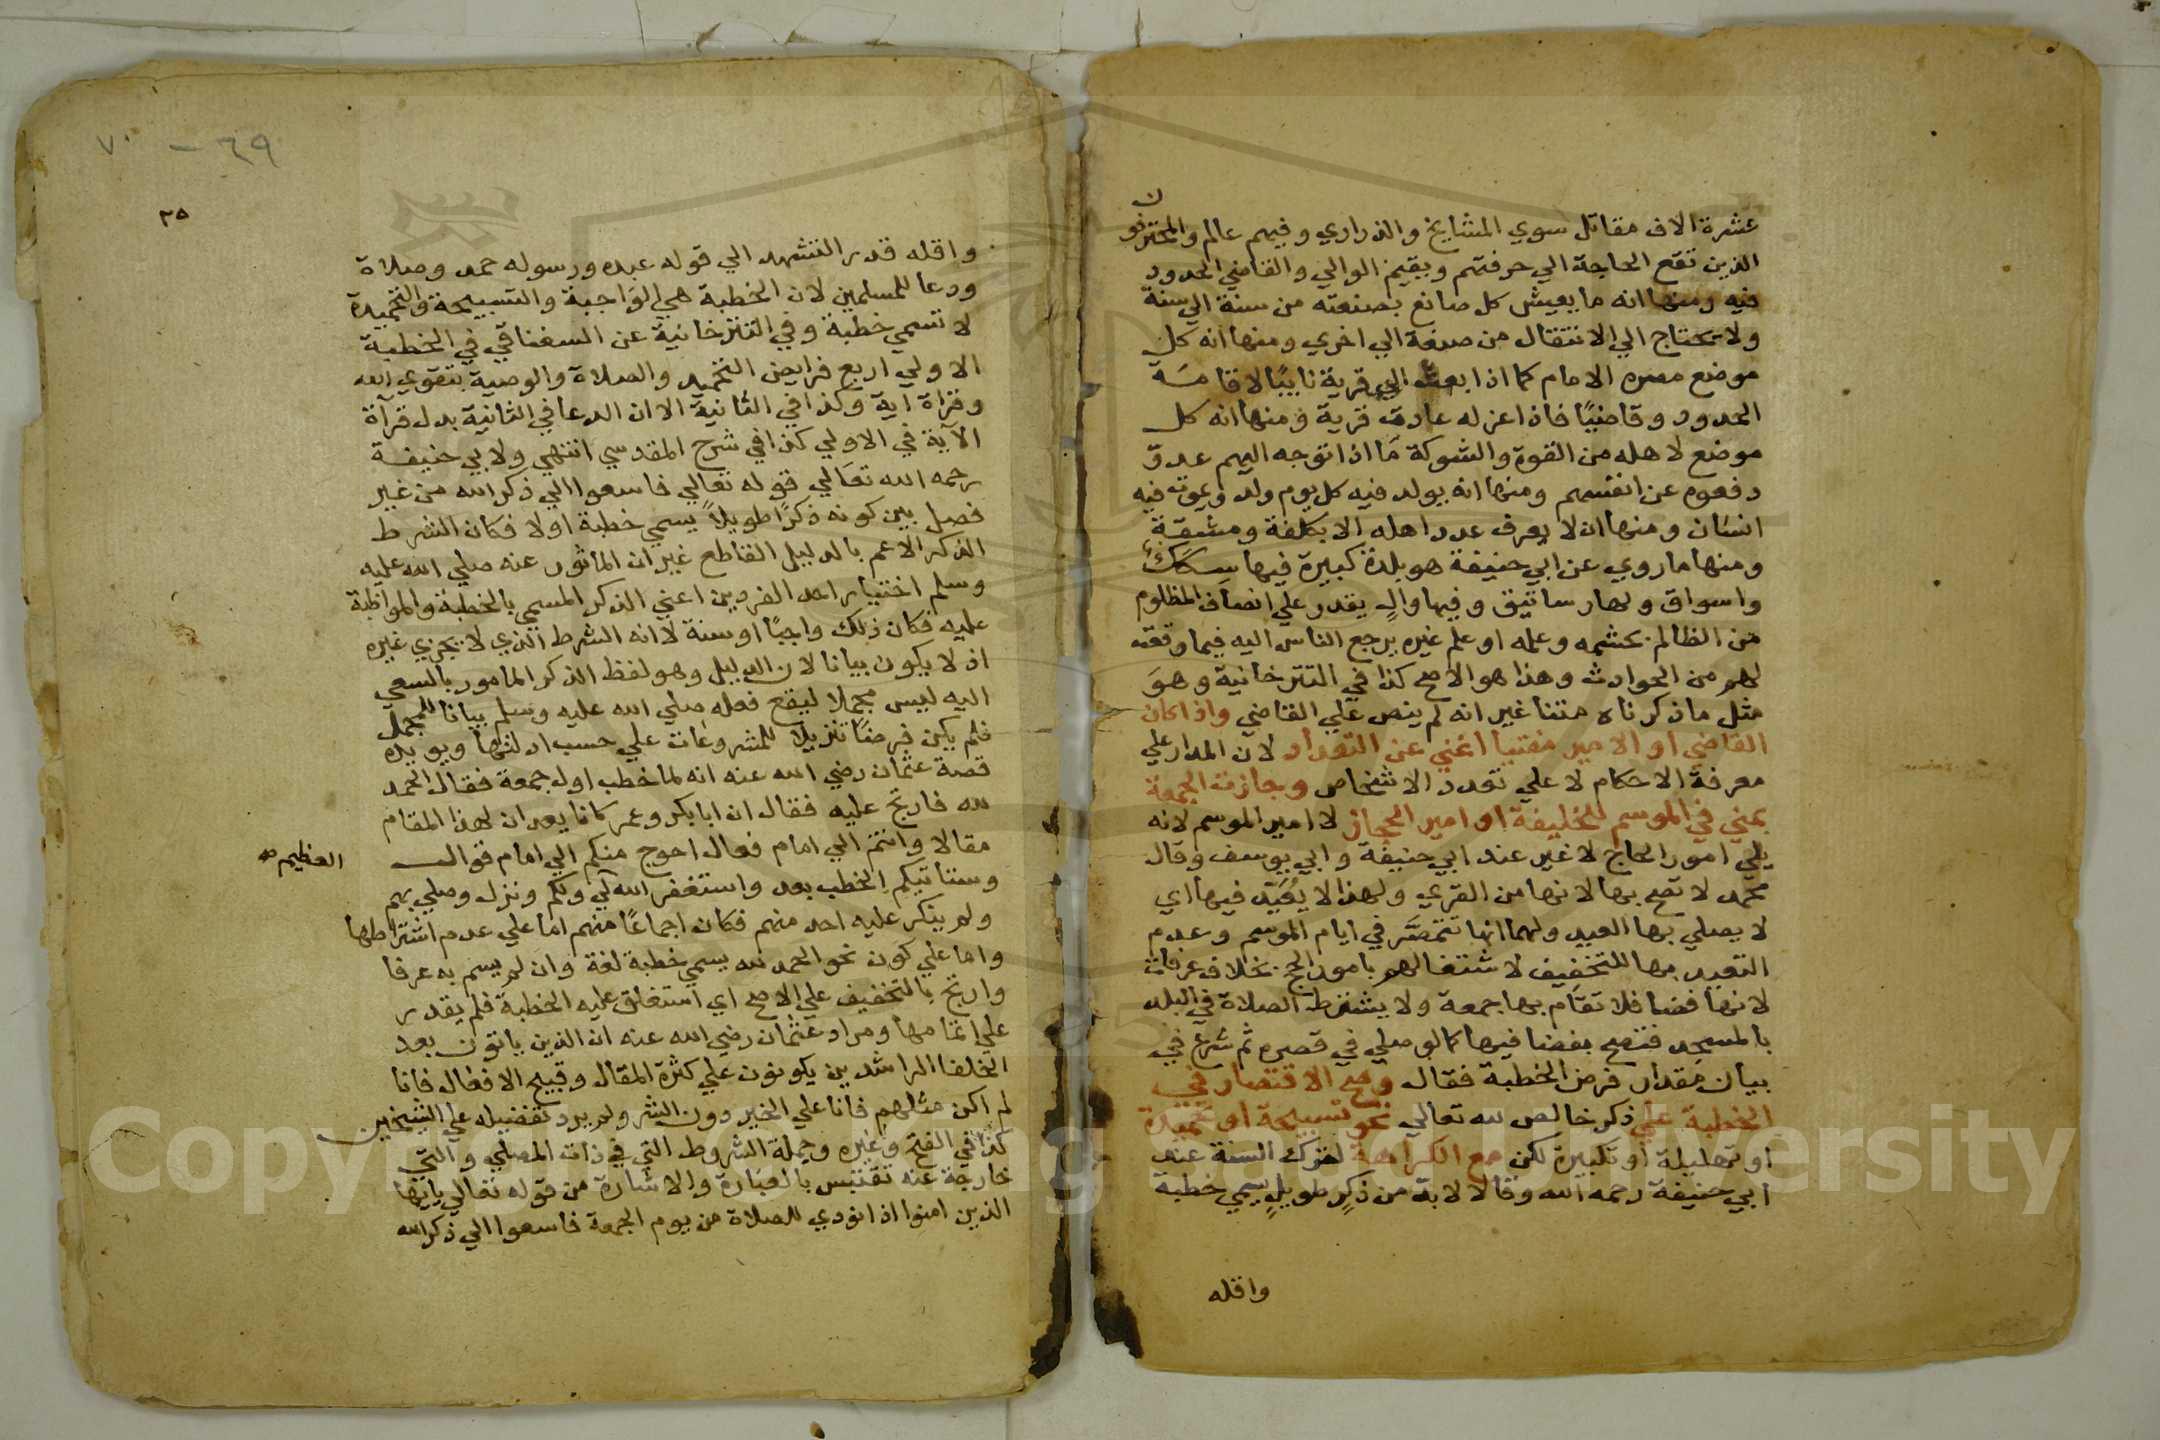 عشرة الاف مقاتل سوي المشايخ والذراري وفيهم عالم والمحترفون
الذين تقع الحاجة الي حرفتهم ويقيم الوالي والقاضي الحدود
فيه ومنها انه ما يعيش كل صانع بصنعته من سنة الي سنة
ولا يحتاج الي الانتقال من صنعة الي اخري ومنها انه كل
موضع مصره الامام كما اذا بعث الي قرية نايبًا لاقامة
الحدود وقاضيًا فاذا عزله عادت قرية ومنها انه كل
موضع لاهله من القوة والشوكة ما اذا توجه اليهم عدو
دفعوه عن انفسهم ومنها انه يولد فيه كل يوم ولد ويموت فيه
انسان ومنها ان لا يعرف عدد اهله الا بكلفة ومشقة
ومنها ما روي عن ابي حنيفة هو بلدة كبيرة فيها سكك
واسواق ولها رساتيق وفيها والٍ يقدر علي انصاف المظلوم
من الظالم بحشمه وعلمه او علم غيره يرجع الناس اليه فيما وقعت
لهم من الحوادث وهذا هو الاصح كذا في التترخانية وهو
مثل ما ذكرناه متنا غير انه لم ينص علي القاضي واذا كان
القاضي او الامير مفتيا اغني عن التعداد لان المدار علي
معرفة الاحكام لا علي تعدد الاشخاص وجازت الجمعة
بمني في الموسم للخليفة او امير الحجاز لا امير الموسم لانه
يلي امور الحاج لا غير عند ابي حنيفة وابي يوسف وقال
محمد لا تصح بها لانها من القري ولهذا لا يُعَيَّد فيها اي
لا يصلي بها العيد ولهما انها تتمصّر في ايام الموسم وعدم
التعيد بها للتخفيف لاشتغالهم بامور الحج بخلاف عرفات
لانها فضا فلا تقام بها جمعة ولا يشترط الصلاة في البلد
بالمسجد فتصح بفضا فيها كما لو صلي في قصره ثم شرع في
بيان مقدار فرض الخطبة فقال وصح الاقتصار في
الخطبة علي ذكر خالص لله تعالي نحو تسبيحة او تحميدة
او تهليلة او تكبيرة لكن مع الكراهة لترك السنة عند
ابي حنيفة رحمه الله وقالا لا بد من ذكرٍ طويلٍ يسمي خطبة
واقله
٦٩ - ٧٠
٣٥
واقله قدر التشهد الي قوله عبده ورسوله حمد وصلاة
ودعا للمسلمين لان الخطبة هي الواجبة والتسبيحة والتحميدة
لا تسمي خطبة وفي التترخانية عن السغناقي في الخطبة
الاولي اربع فرايض التحميد والصلاة والوصية بتقوي الله
وقراة اية وكذا في الثانية الا ان الدعا في الثانية بدل قرآة
الآية في الاولي كذا في شرح المقدسي انتهي ولابي حنيفة
رحمه الله تعالي قوله تعالي فاسعوا الي ذكر الله من غير
فصل بين كونه ذكرًا طويلاً يسمي خطبة اولا فكان الشرط
الذكر الاعم بالدليل القاطع غير ان الماثور عنه صلي الله عليه
وسلم اختيار احد الفردين اعني الذكر المسمي بالخطبة والمواظبة
عليه فكان ذلك واجبًا او سنة لا انه الشرط الذي لا يجزي غيره
اذ لا يكون بيانا لان الدليل وهو لفظ الذكر المامور بالسعي
اليه ليس مجملا ليقع فعله صلي الله عليه وسلم بيانا للمجمل
فلم يكن فرضًا تنزيلا للمشروعات علي حسب ادلتها ويويده
قصة عثمان رضي الله عنه انه لما خطب اول جمعة فقال الحمد
لله فارتج عليه فقال ان ابا بكر وعمر كانا يعدان لهذا المقام
مقالا وانتم الي امام فعال احوج منكم الي امام قوال
العظيم صح
وستاتيكم الخطب بعد واستغفر الله لي ولكم ونزل وصلي بهم
ولم ينكر عليه احد منهم فكان اجماعًا منهم اما علي عدم اشتراطها
واما علي كون نحو الحمد لله يسمي خطبة لغة وان لم يسم به عرفا
وارتج بالتخفيف علي الاصح اي استغلق عليه الخطبة فلم يقدر
علي اتمامها ومراد عثمان رضي الله عنه ان الذين ياتون بعد
الخلفا الراشدين يكونون علي كثرة المقال وقبيح الافعال فانا
لم اكن مثلهم فانا علي الخير دون الشر ولم يرد تفضيله علي الشيخين
كذا في الفتح وغيره وجملة الشروط التي في ذات المصلي والتي
خارجة عنه تقتبس بالعبارة والاشارة من قوله تعالي يايها
الذين امنوا اذا نودي للصلاة من يوم الجمعة فاسعوا الي ذكر الله